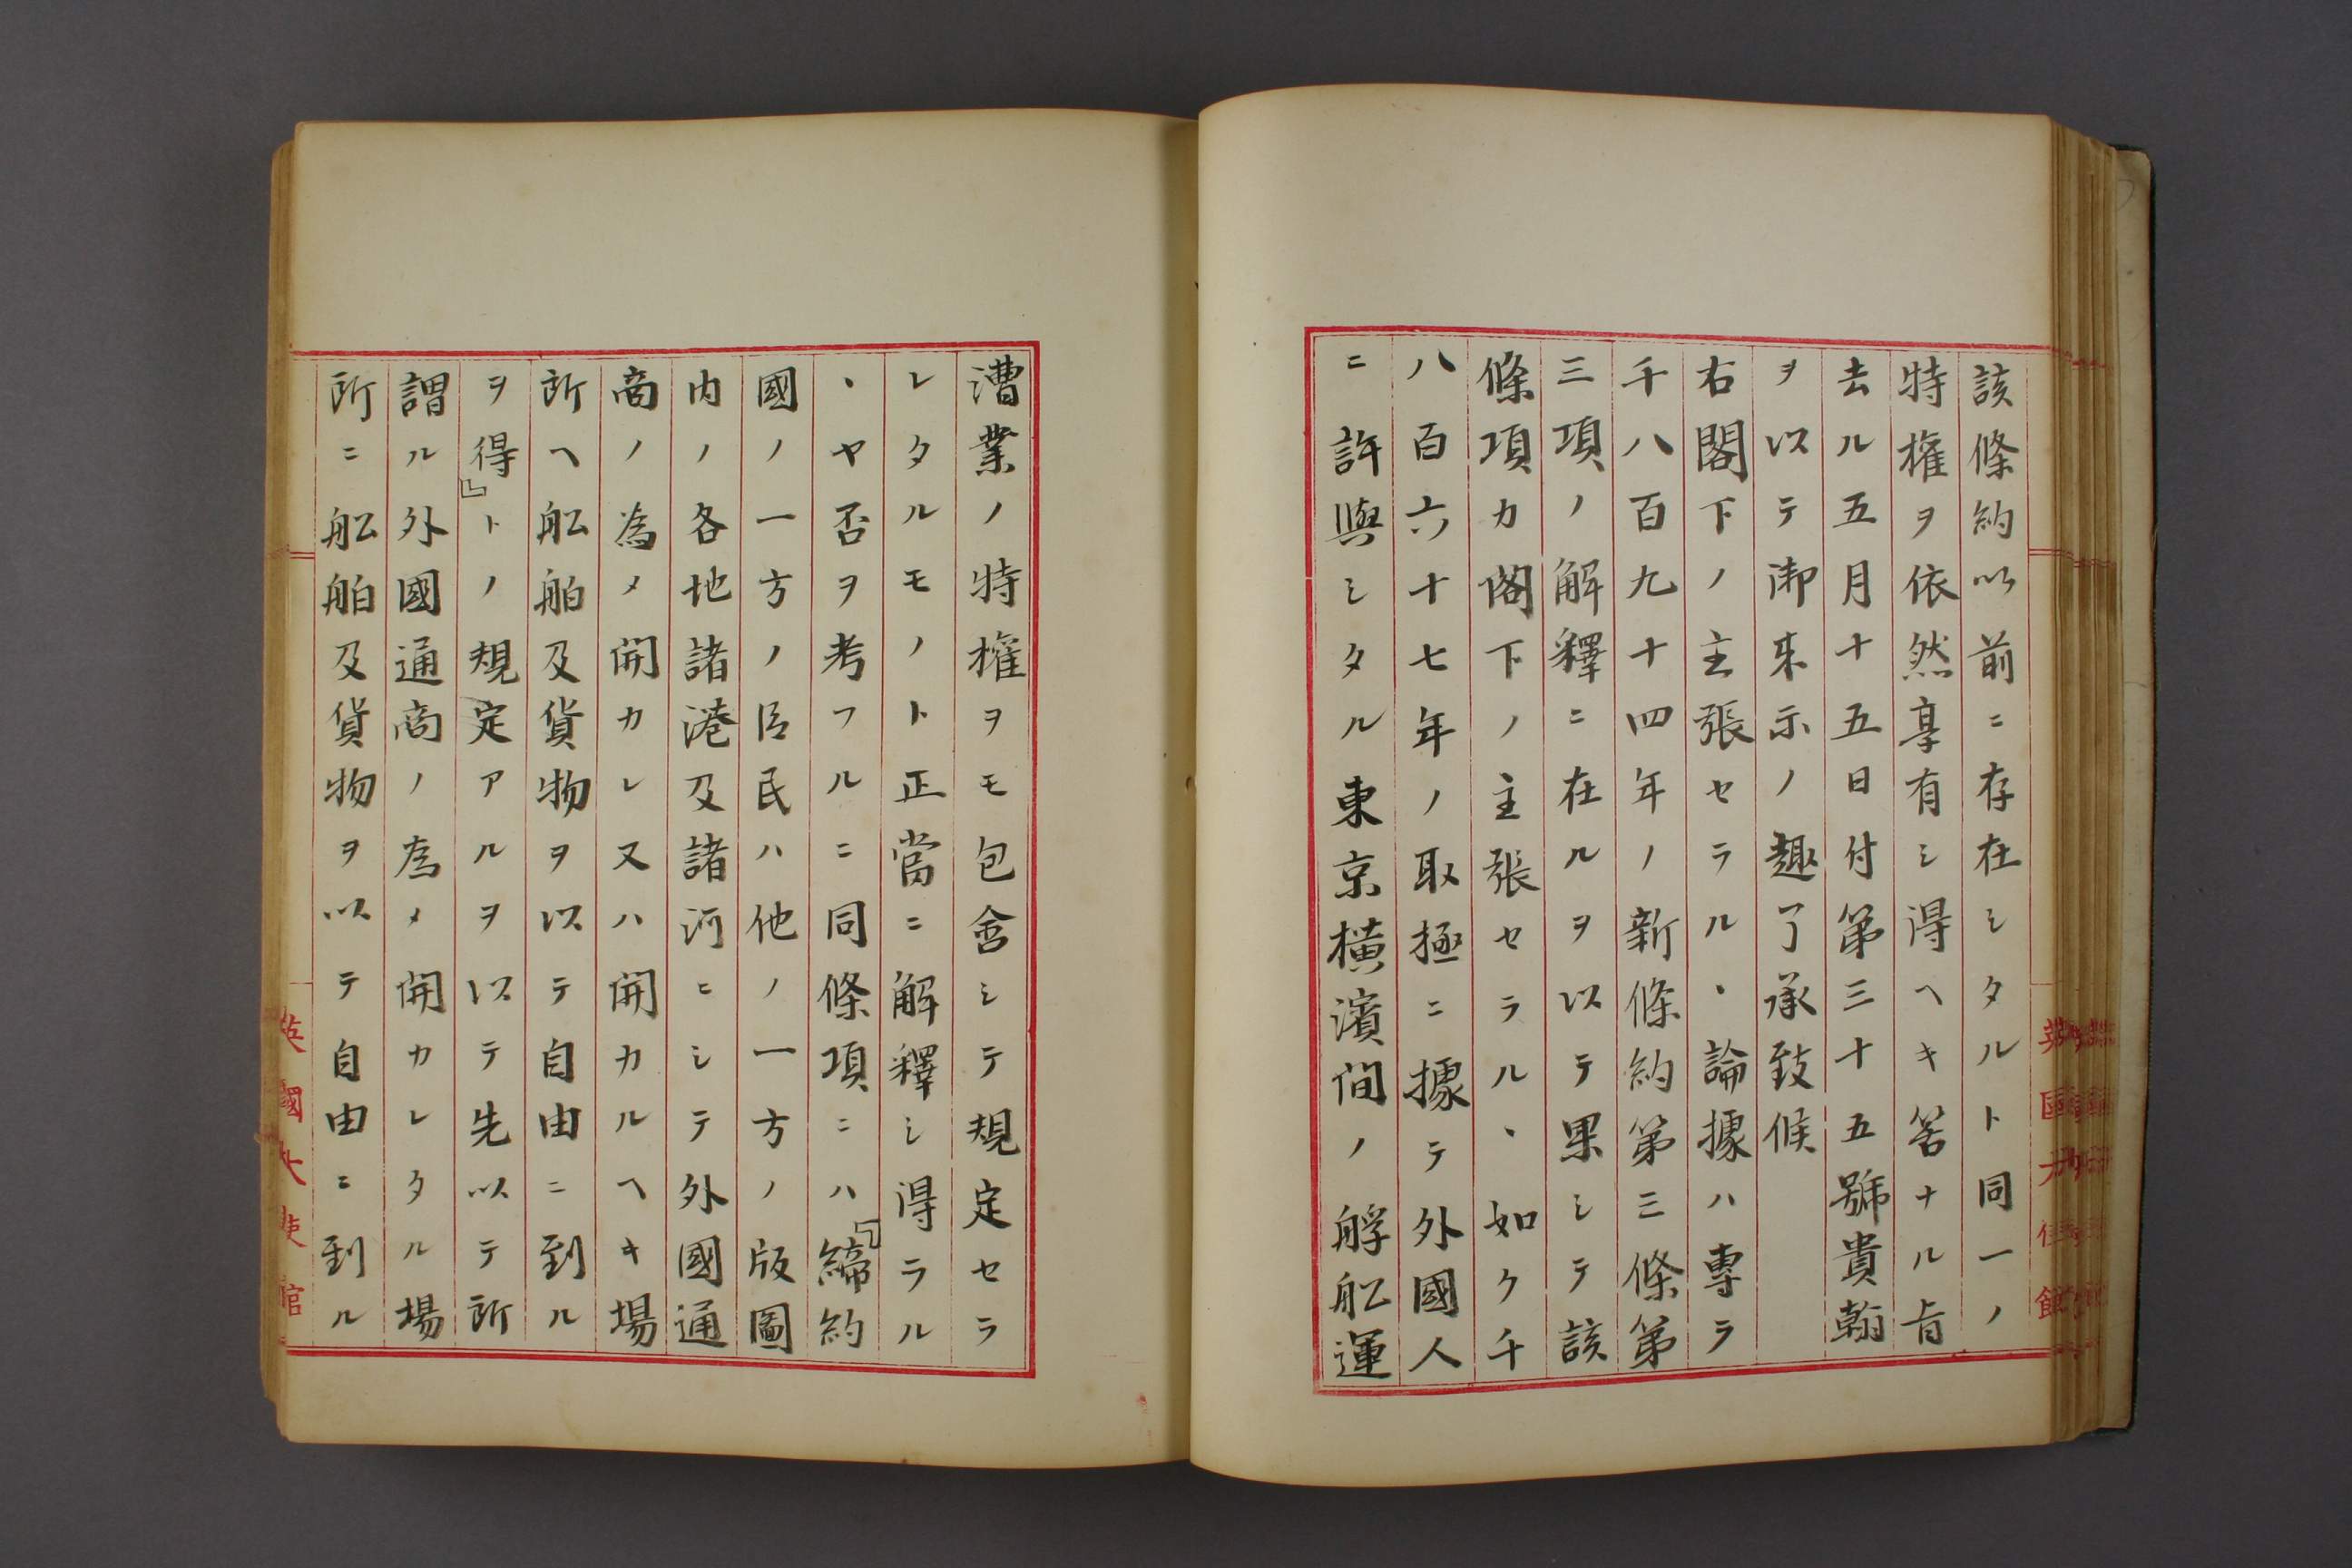 該條約以前ニ存在シタルト同一ノ
特權ヲ依然享有シ得ヘキ筈ナル旨
去ル五月十五日付第三十五號貴翰
ヲ以テ御来示ノ趣了承致候
右閣下ノ主張セラルヽ論據ハ專ラ
千八百九十四年ノ新條約第三條第
三項ノ解釋ニ在ルヲ以テ果シテ該
條項カ閣下ノ主張セラルヽ如ク千
八百六十七年ノ取極ニ據テ外國人
ニ許與シタル東京橫濱間ノ艀舩運
漕業ノ特權ヲモ包含シテ規定セラ
レタルモノト正當ニ解釋シ得ラル
ヽヤ否ヲ考フルニ同條項ニハ『締約
國ノ一方ノ臣民ハ他ノ一方ノ版圖
内ノ各地諸港及諸河ニシテ外國通
商ノ為メ開カレ又ハ開カルヘキ場
所ヘ舩舶及貨物ヲ以テ自由ニ到ル
ヲ得』トノ規定アルヲ以テ先以テ所
謂ル外國通商ノ為メ開カレタル場
所ニ舩舶及貨物ヲ以テ自由ニ到ル
英國大使館